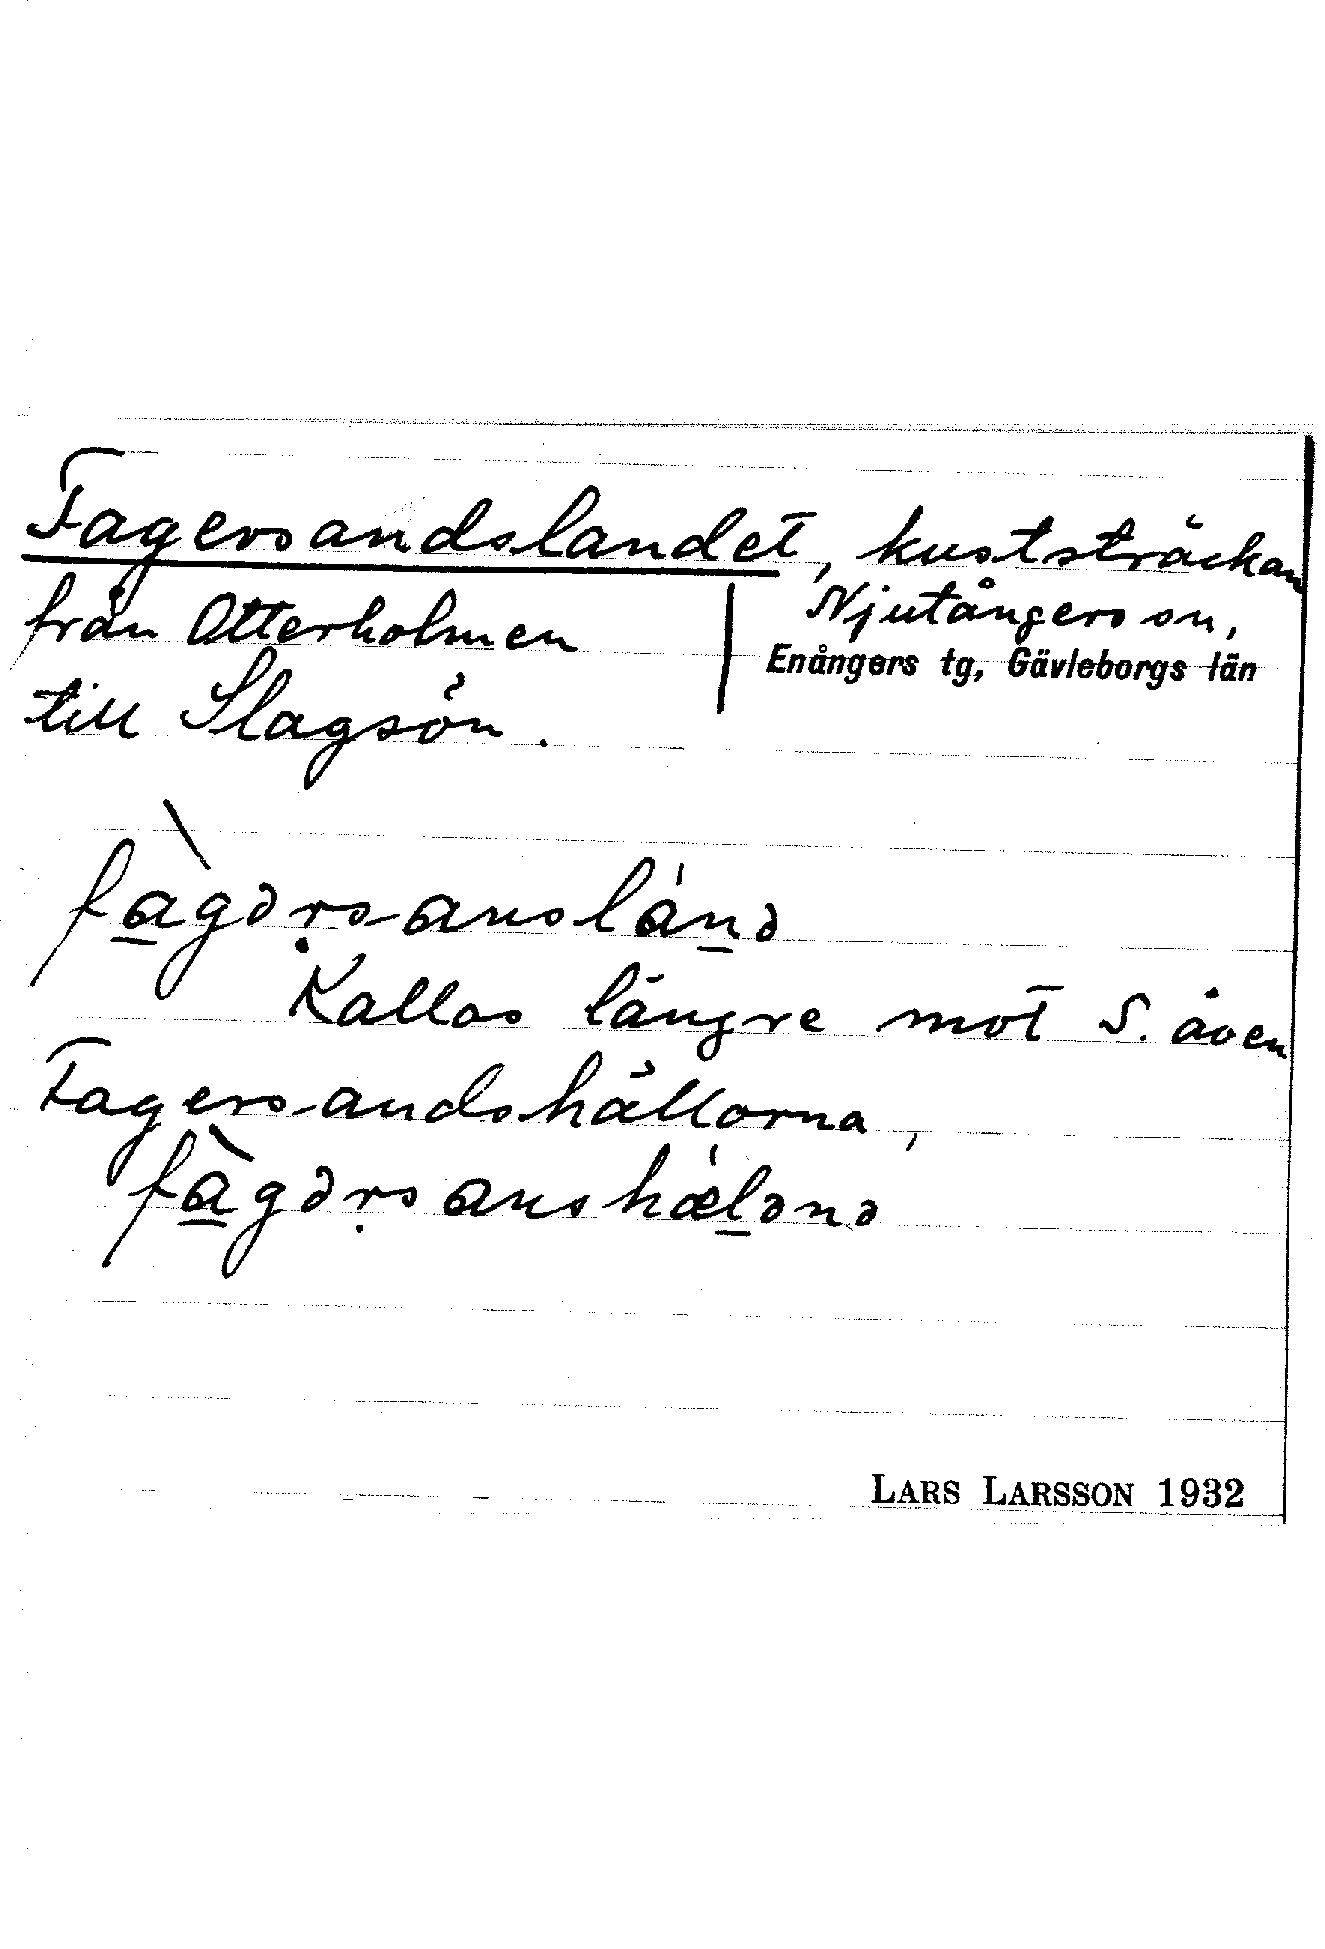 Fagersandslandet, kuststräckan
från Otterholmen
till Slagsön.
Njutångers sn,
Enångers tg, Gävleborgs län
fà̲gəṛsanslán̲ə
Kallas längre mot S. även
Fagersandshällorna,
fà̲gəṛsanshǽl̲ənə
LARS LARSSON 1932